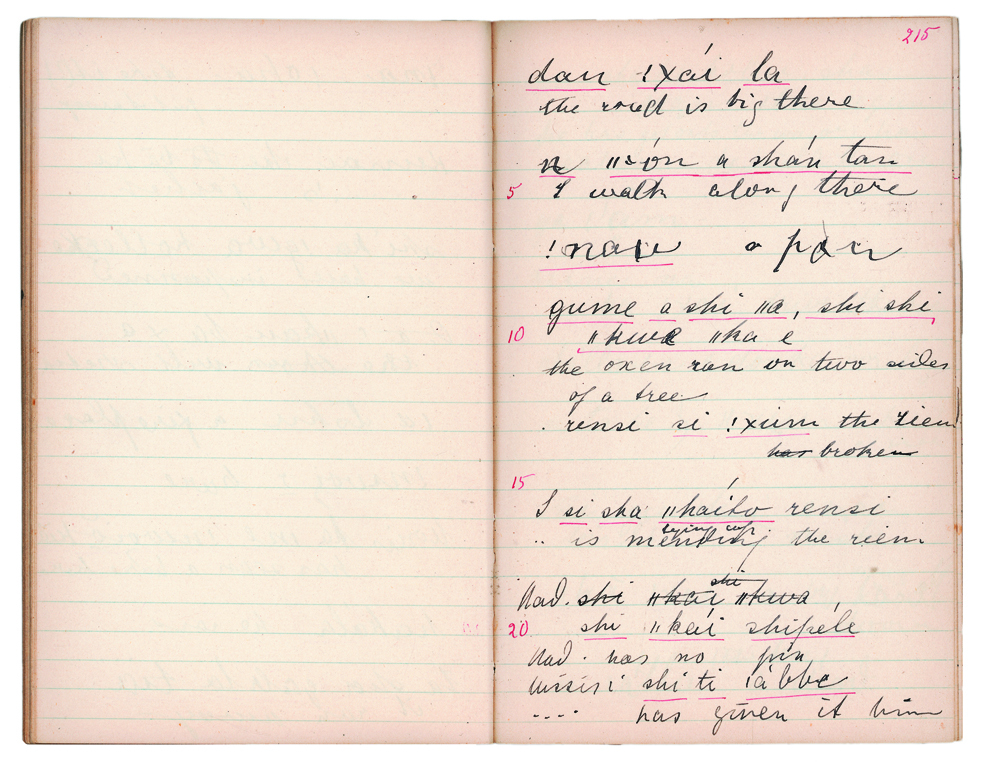 215
dan !xái la
the road is big there
n ǁɜón a shán tan
5 I walk along there
!naiu a pan
gume a shi ǁa, shi shi,
10 ǁkwe ǁka e
the oxen ran on two sides
of a tree
rensi si !xum the riem
has broken
15
I si sha ǁkáíto rensi
tying up
.. is mending the riem
shi
Nad. shi ǁkaí ǁkwa,
20 shi ǁkaí shipéle
Nad. has no pin
Missisi shi ti ǀábbe
---- has given it him